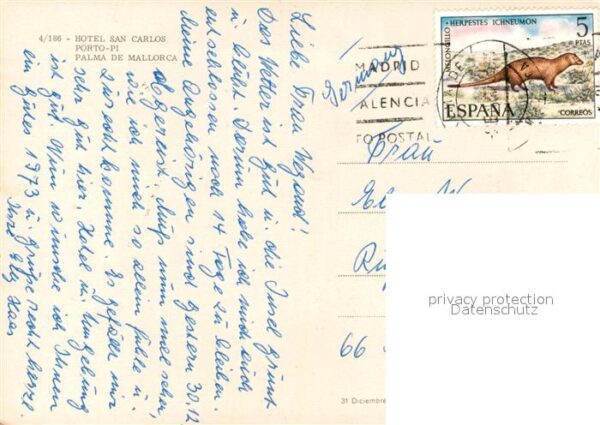 4/186 - HOTEL SAN CARLOS
PORTO-PI
PALMA DE MALLORCA
Liebe Frau
Das Wetter ist gut u. die Insel grünt
u. blüht. Darum habe ich mich auch
entschlossen noch 14 Tage zu bleiben.
Meine Angehörigen sind gestern 30.12
abgereist. Muß nun mal sehen,
wie ich mich so allein fühle u.
zurecht komme. Es gefällt mir
sehr gut hier. Hotel u. Umgebung
ist gut. Nun wünsche ich Ihnen
ein gutes 1973 u. grüße recht herzl.
Ihre
HERPESTES ICHNEUMON
5
PTAS
ESPAÑA
CORREOS
MADRID
VALENCIA
TO POSTAL
Germany
Frau
66
31 Diciembre
privacy protection
Datenschutz